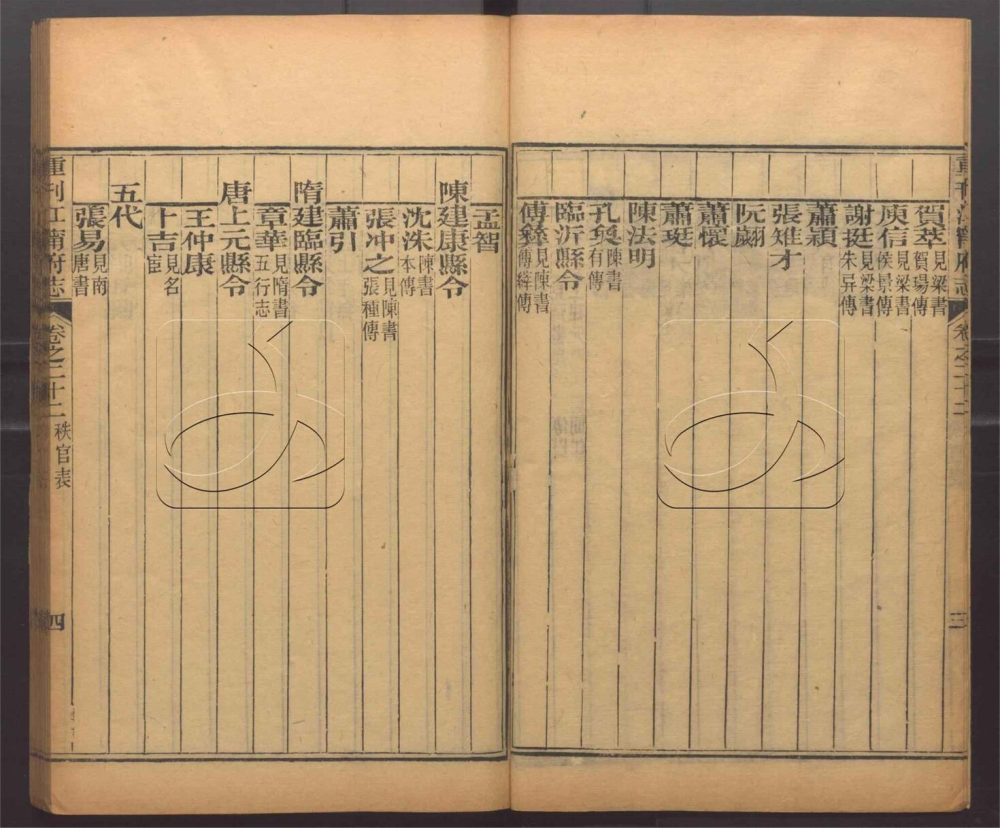 重刊江甯府志 卷之二十二 三
賀萃 見梁書賀瑒傳
庾信 見梁書侯景傳
謝挺 見梁書朱异傳
蕭穎
張雉才
阮翽
蕭懷
蕭珽
陳法明
孔奐 陳書有傳
臨沂縣令
傅彝 見陳書傅縡傳
孟智
陳建康縣令
沈洙 陳書本傳
張冲之 見陳書張種傳
蕭引
隋建臨縣令
章華 見隋書五行志
唐上元縣令
王仲康
卞吉 見名宦
五代
張易 見南唐書
重刊江甯府志 卷之二十二 秩官表 四